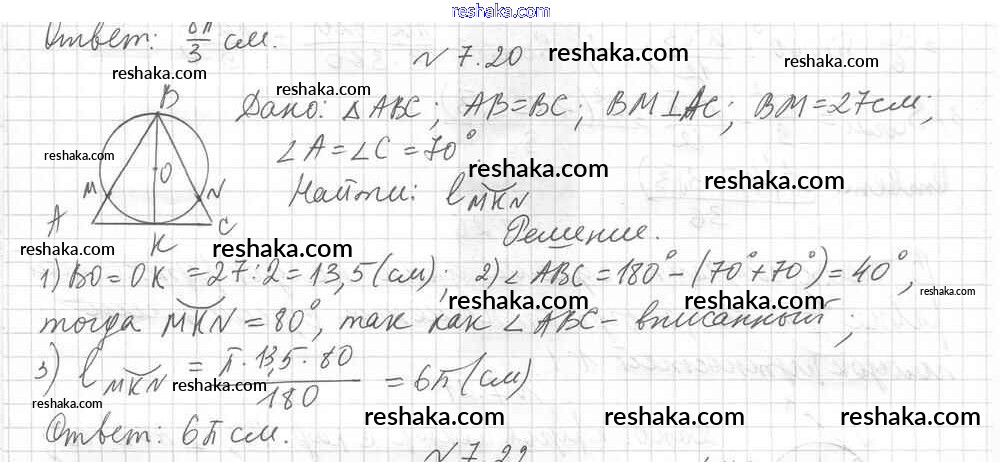 reshaka.com
Ответ: 8π/3 см.
№ 7.20
reshaka.com
reshaka.com
reshaka.com
B
Дано: △ABC; AB=BC; BM⊥AC; BM=27см;
∠A=∠C=70°.
reshaka.com
reshaka.com
O
reshaka.com
M
N
Найти: l MKN
A
C
K
Решение.
reshaka.com
reshaka.com
1) BO=OK=27:2=13,5(см); 2) ∠ABC=180°-(70°+70°)=40°,
reshaka.com
reshaka.com
reshaka.com
тогда MKN=80°, так как ∠ABC- вписанный;
3) l MKN = π·13,5·80/180 = 6π(см)
reshaka.com
reshaka.com
reshaka.com
reshaka.com
reshaka.com
Ответ: 6π см.
№ 7.22